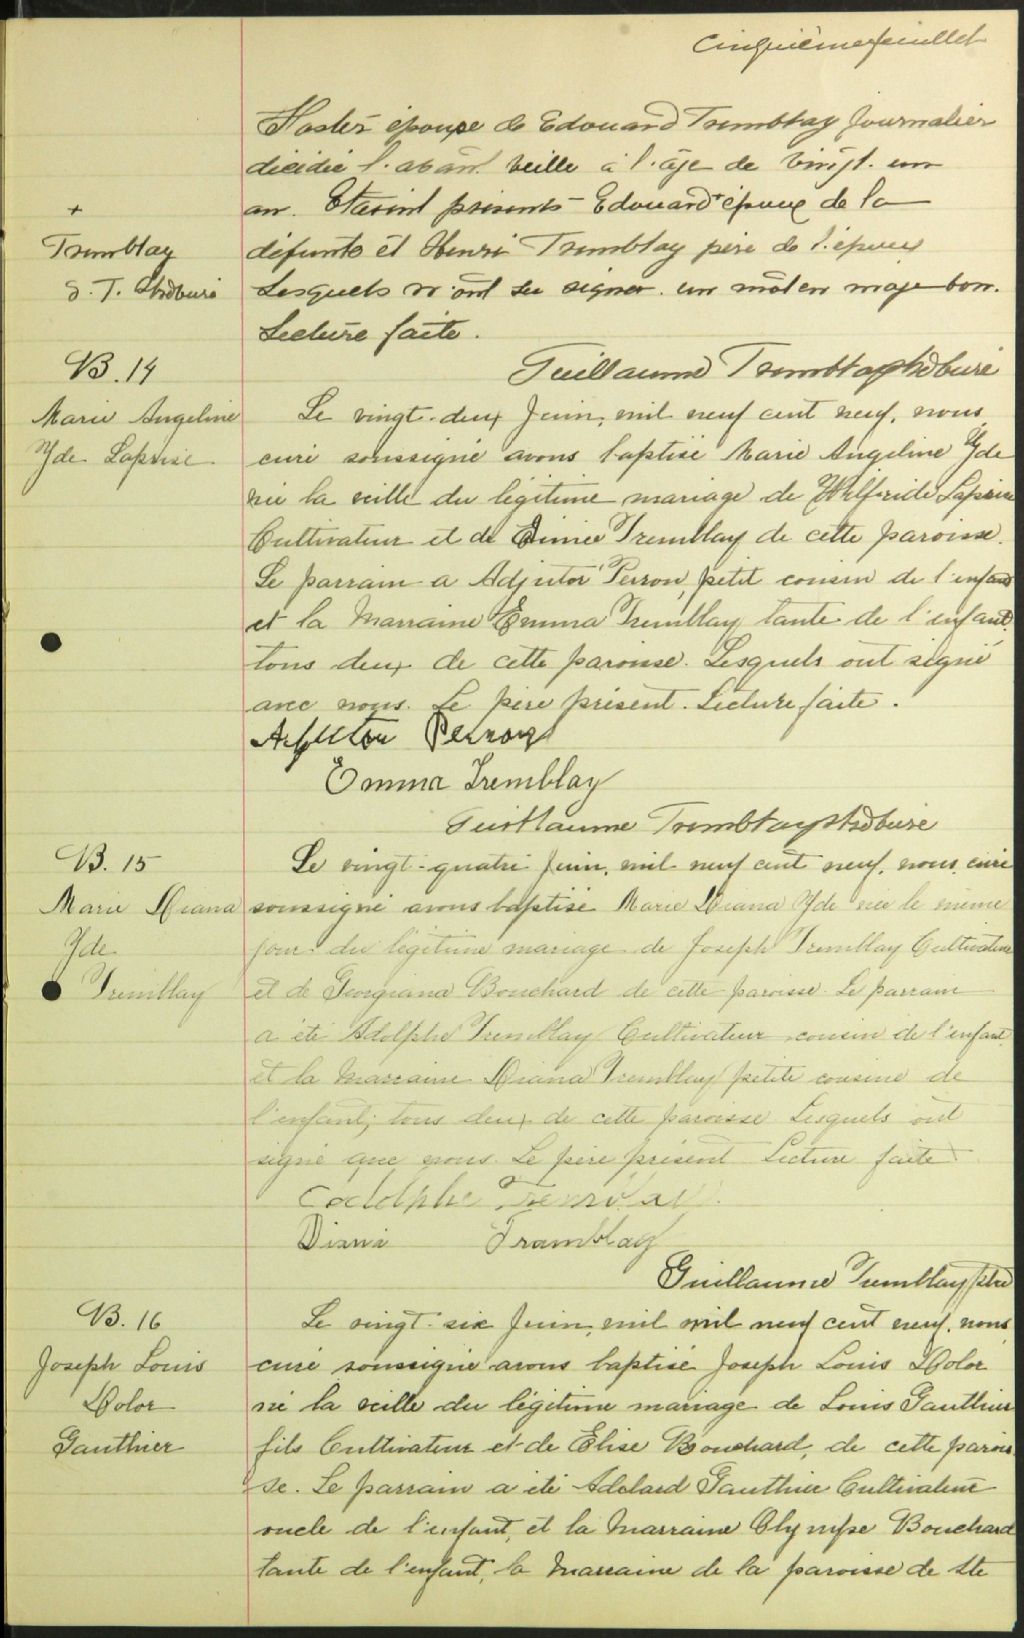 Cinquième feuillet
épouse de Edouard Tremblay Journalier
décédée l'avant veille à l'âge de vingt-un
an. Etaient présents Edouard + époux de la
défunte et Henri Tremblay père de l'époux
Lesquels n'ont su signer. un mot en marge bon.
Lecture faite.
+
Tremblay
G. T. Ptre curé
Guillaume Tremblay Ptre curé
B. 14
Marie Angeline
Yde Laprise
Le vingt-deux Juin, mil neuf cent neuf, nous
curé soussigné avons baptisé Marie Angeline Yde
née la veille du légitime mariage de Wilfride Laprise
Cultivateur et de Eimée Tremblay de cette paroisse.
Le parrain a Adjutor Perron, petit cousin de l'enfant
et la Marraine Emma Tremblay tante de l'enfant.
tous deux de cette paroisse. Lesquels ont signé
avec nous. Le père présent. Lecture faite.
Adjutor Perron
Emma Tremblay
Guillaume Tremblay Ptre curé
B. 15
Marie Diana
Yde
Tremblay
Le vingt-quatre Juin, mil neuf cent neuf, nous, curé
soussigné avons baptisé Marie Diana Yde née le même
jour du légitime mariage de Joseph Tremblay Cultivateur
et de Georgiana Bouchard de cette paroisse. Le parrain
a été Adolphe Tremblay Cultivateur, cousin de l'enfant
et la Marraine Diana Tremblay petite cousine de
l'enfant; tous deux de cette paroisse. Lesquels ont
signé avec nous. Le père présent Lecture faite
Adolphe Tremblay
Diana Tramblay
Guillaume Tremblay Ptre
B. 16
Joseph Louis
Dolor
Gauthier
Le vingt-six Juin, mil mil neuf cent neuf, nous
curé soussigné avons baptisé Joseph Louis Dolor
né la veille du légitime mariage de Louis Gauthier
fils Cultivateur et de Elise Bouchard, de cette parois
se. Le parrain a été Adelard Gauthier Cultivateur
oncle de l'enfant, et la Marraine Olympe Bouchard
tante de l'enfant, la Marraine de la paroisse de Ste